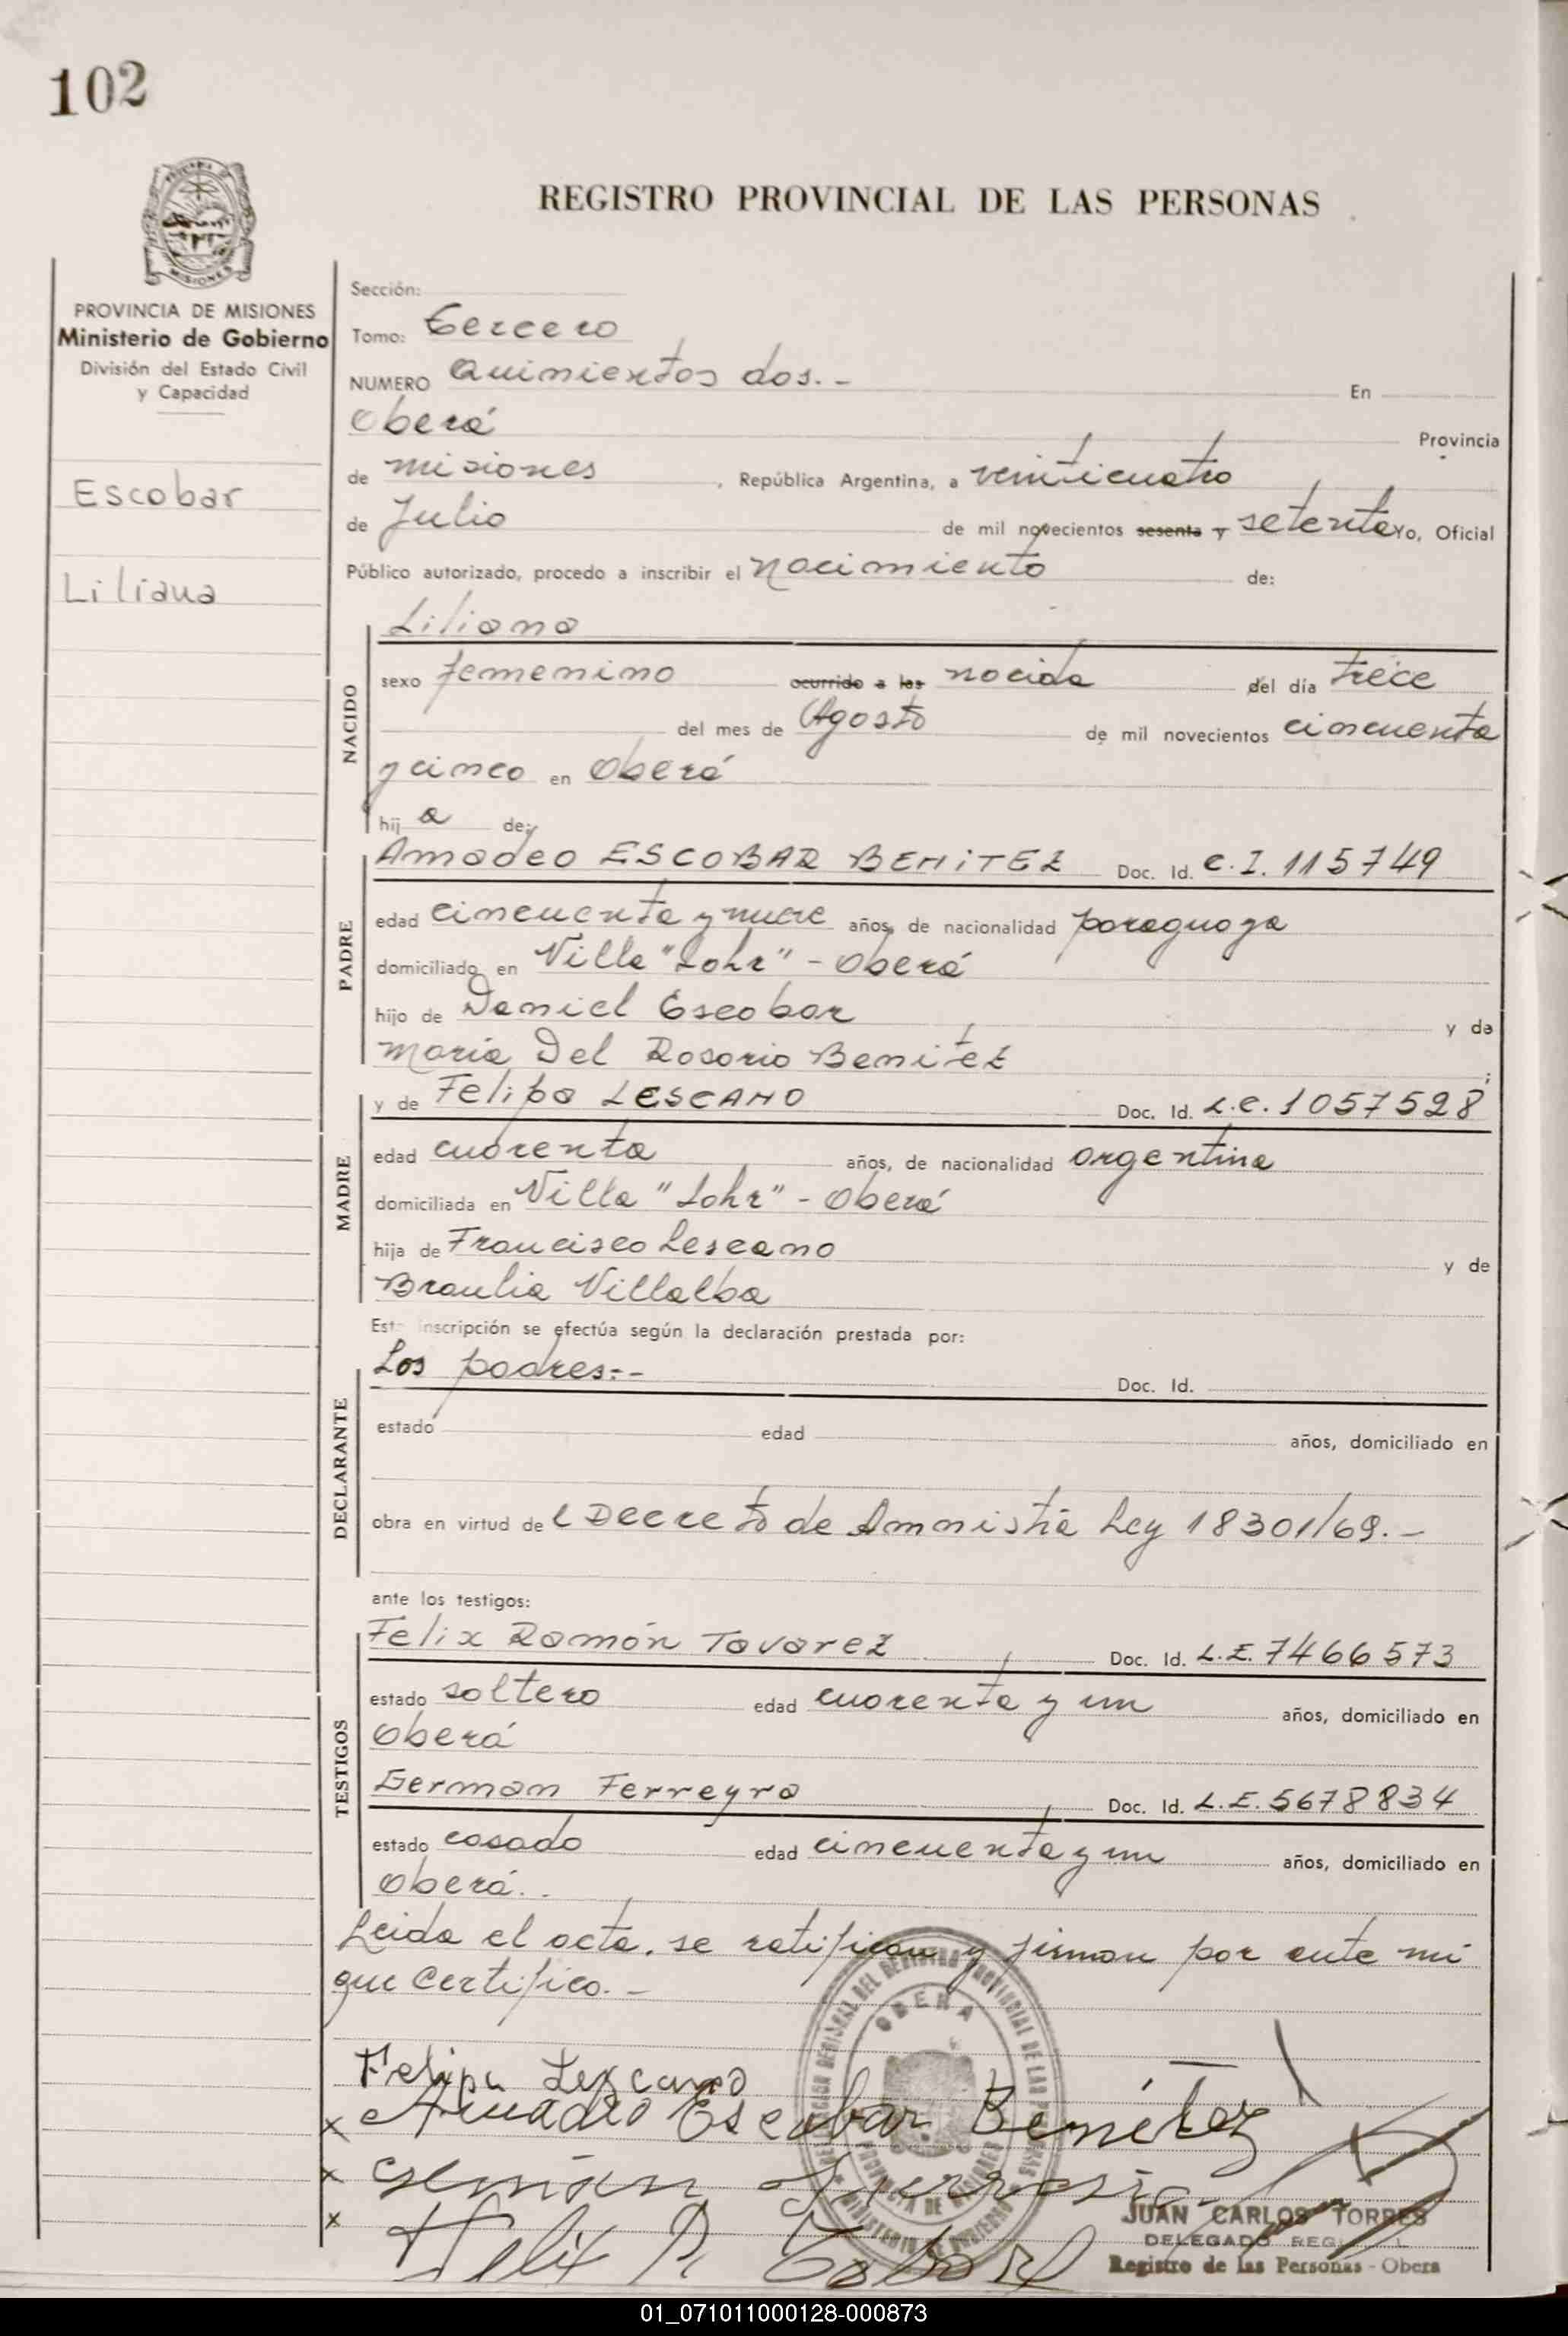 102
REGISTRO PROVINCIAL DE LAS PERSONAS
MISIONES
PROVINCIA DE MISIONES
Ministerio de Gobierno
División del Estado Civil
y Capacidad
Escobar
Liliana
Sección:
Tomo: tercero
NUMERO Quinientos dos.- En
Oberá Provincia
de misiones, República Argentina, a veinticuatro
de Julio de mil novecientos sesenta y setenta Yo, Oficial
Público autorizado, procedo a inscribir el nacimiento de:
NACIDO
Liliana
sexo femenino ocurrido a las nacida del día trece
del mes de Agosto de mil novecientos cincuenta
y cinco en Oberá
hij a de:
PADRE
Amadeo ESCOBAR BENITEZ Doc. Id. C.I. 115749
edad cincuenta y nueve años, de nacionalidad paraguaya
domiciliado en Villa "Lohr" - Oberá
hijo de Daniel Escobar y de
María Del Rosario Benítez ;
MADRE
y de Felipa LESCANO Doc. Id. L.C. 1057528
edad cuarenta años, de nacionalidad argentina
domiciliada en Villa "Lohr" - Oberá
hija de Francisco Lescano y de
Braulia Villalba
Esta inscripción se efectúa según la declaración prestada por:
DECLARANTE
Los padres:- Doc. Id.
estado edad años, domiciliado en
obra en virtud de l Decreto de Amnistía Ley 18301/69.-
ante los testigos:
TESTIGOS
Felix Ramón Tavarez Doc. Id. L.E. 7466573
estado soltero edad cuarenta y un años, domiciliado en
Oberá
German Ferreyra Doc. Id. L.E. 5678834
estado casado edad cincuenta y un años, domiciliado en
Oberá..
Leida el acta, se ratifican y firman por ante mi
que Certifico.-
OBERA
Felipa Lezcano
x Amadeo Escobar Benítez
x
x Felix R.
JUAN CARLOS TORRES
DELEGADO REGIONAL
Registro de las Personas - Obera
01_071011000128-000873